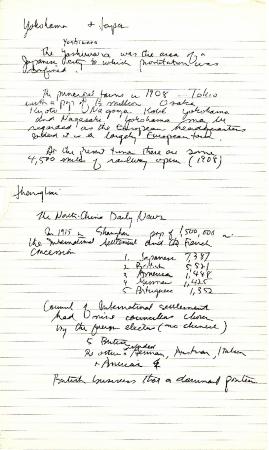 Yokohama + Japan
Yoshiwara
The Yoshiwara was the area of a
Japanese city to which prostitution was
confined.
The principal towns in 1908 - Tokio
with a pop of 1½ million Osaka
Kyoto, Nagoya, Kobe Yokohama
and Nagasaki Yokohama may be
regarded as the European headquarters
indeed it is a largely European town
At the present time there are some
4,500 miles of railway open (1908)
Shanghai
The North-China Daily News
In 1915 in Shanghai pop of 1,500,000 in
the International Settlement and the French
Concession
1. Japanese 7,387
2 British 5,521
3 America 1,448
4 German 1,425
5 Portuguese 1,352
Council of International settlement
had nine councillors chosen
by the foreign electors (no chinese)
5 British
German, Austrian, Italian
+ American
British business had a dominant position